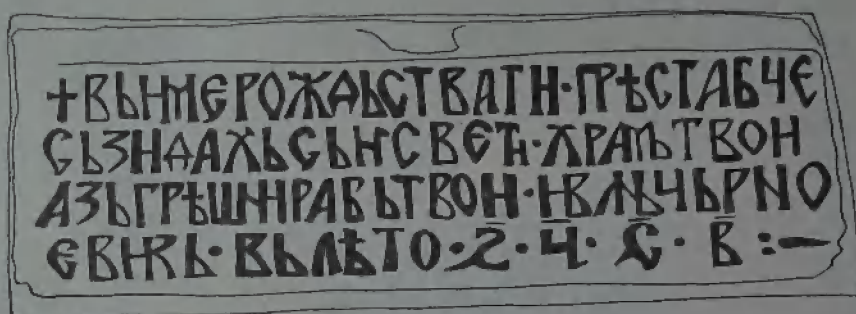 +ВЬНМЕРОЖДЬСТВАТН·ПРѢСТАБЧЕ
СЬЗНДАХЬСЬНСВЕТН·ХРАМЬТВОН
АЗЬГРѢШННРАБЬТВОН·НВЛЬЧЬРNО
ЕВНКЬ·ВЬЛѢТО·Z·Ч·Ѕ·В:—